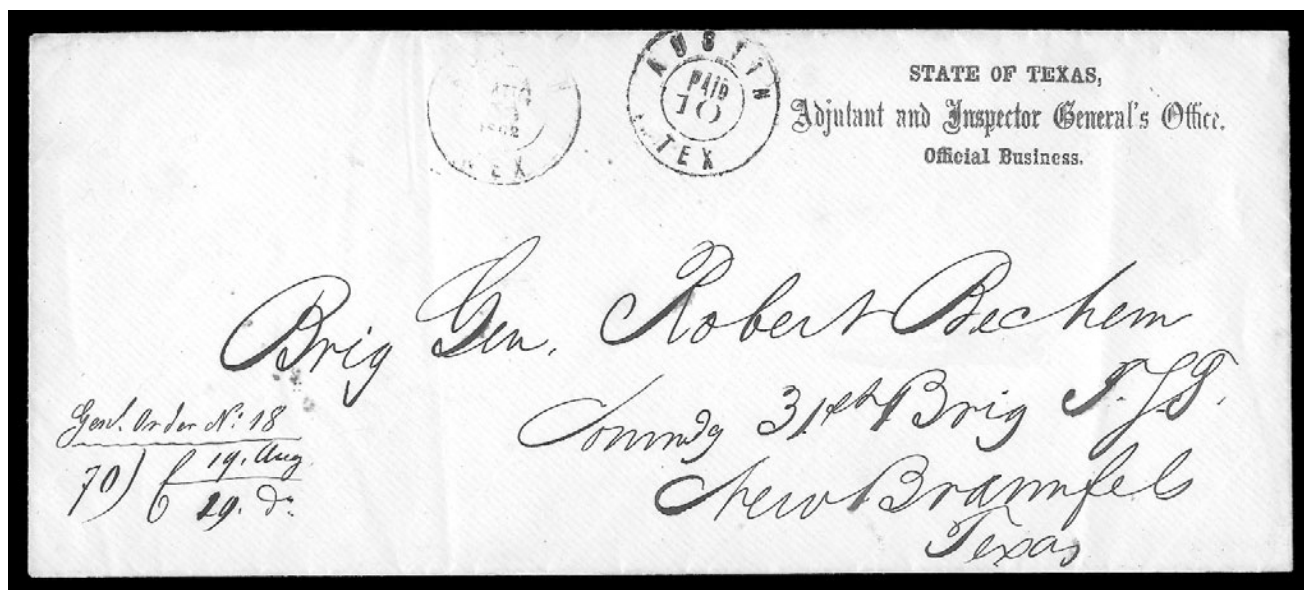 AUSTIN
PAID
10
TEX
1862
TEX
STATE OF TEXAS,
Adjutant and Inspector General's Office.
Official Business.
Brig Gen. Robert Bechem
Commdg 31st Brig T.S.T.
New Braunfels
Texas
Genl. Order No: 18
70) 19. Aug.
29. do: